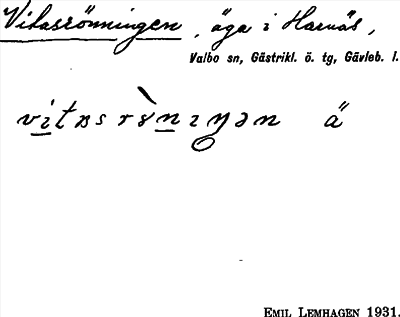 Vitasrönningen, äga i Harnäs,
Valbo sn, Gästrikl. ö. tg, Gävleb. l.
vitɐsrɤ̀nɪŋən ä
EMIL LEMHAGEN 1931.